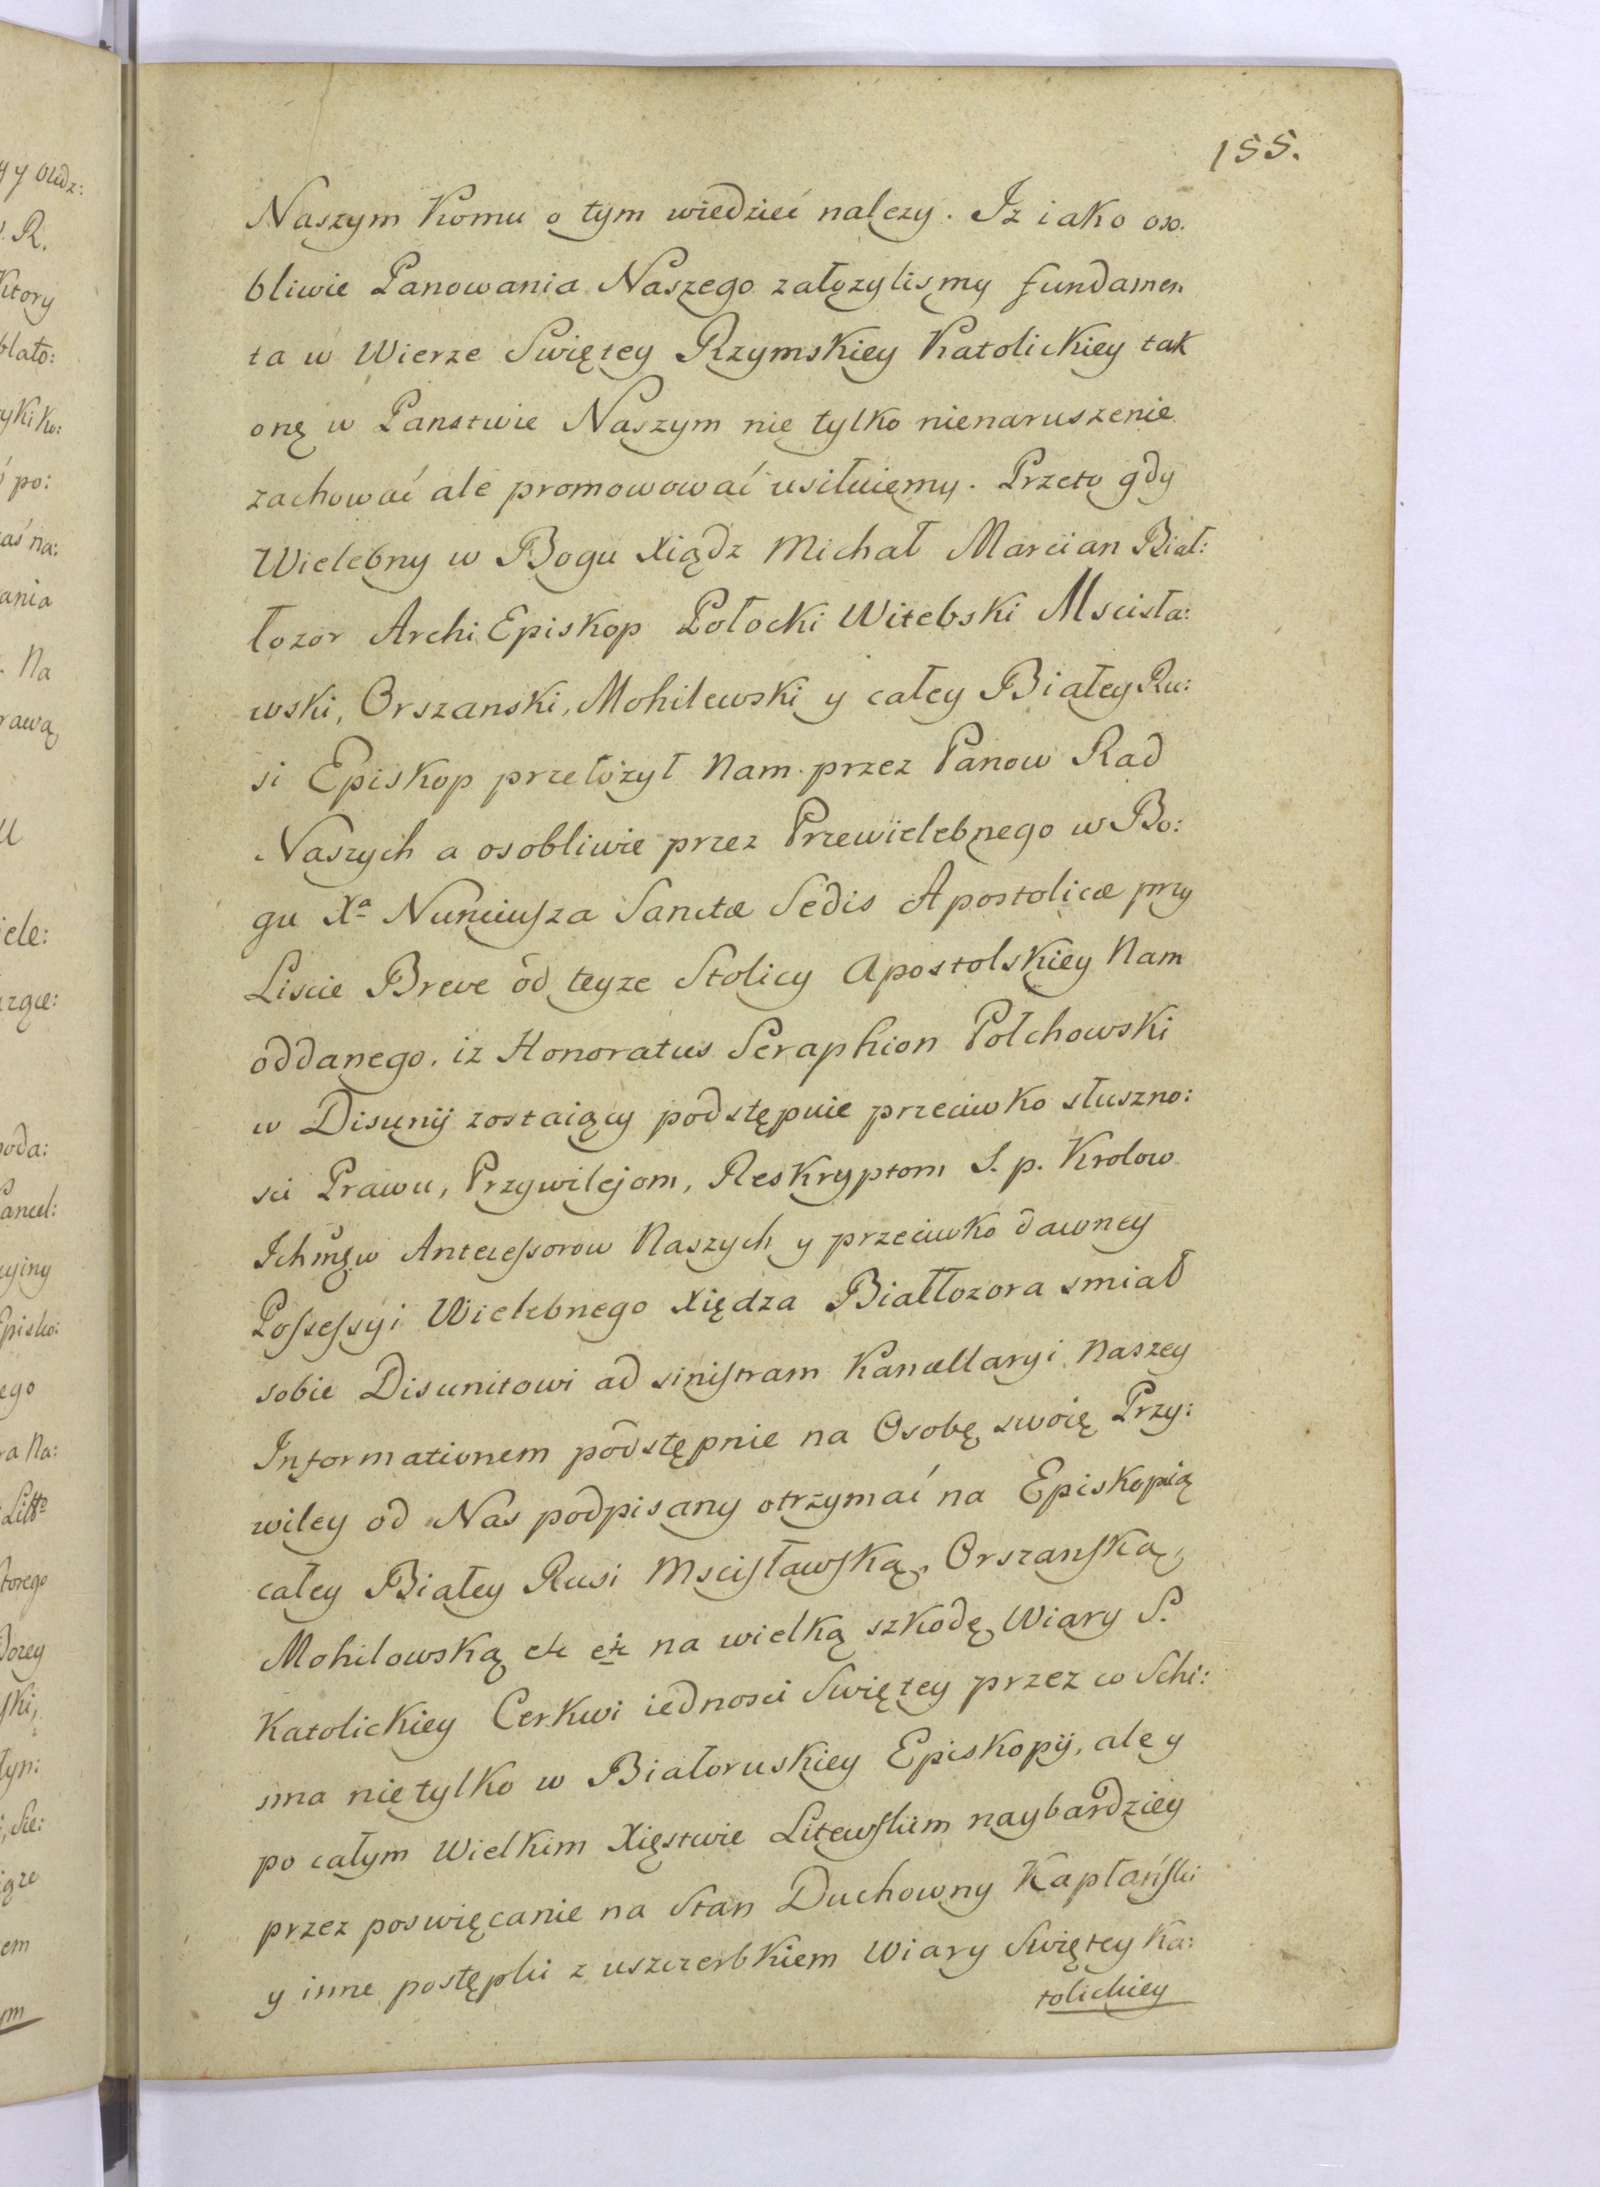 155.
Naszym Komu o tym wiedzieć nalezy. Iz iako oso.
bliwie Panowania Naszego załozylismy fundamen
ta w Wierze Swiętey Rzymskiey Katolickiey tak
onę w Panstwie Naszym nie tylko nienaruszenie
zachować ale promowować usiłuięmy. Przeto gdy
Wielebny w Bogu Xiądz Michał Marcian Biał:
łozor Archi Episkop Połocki Witebski Mscisła:
wski, Orszanski, Mohilewski y całey Białey Ru:
si Episkop przełożył Nam przez Panow Rad
Naszych a osobliwie przez Przewielebnego w Bo:
gu Xa Nunciusza Sanctæ Sedis Apostolicæ przy
Liscie Breve od teyze Stolicy Apostolskiey Nam
oddanego, iz Honoratus Seraphion Połchowski
w Disunij zostaiący podstępnie przeciwko słuszno:
sci Prawu, Przywilejom, Reskryptom S. p. Krolow
Ichmcw Antecessorow Naszych y przeciwko dawney
Possessyi Wielebnego Xiędza Białłozora smiał
sobie Disunitowi ad sinistram Kancellaryi Naszey
Informationem podstępnie na Osobę swoię Przy:
wiley od Nas podpisany otrzymać na Episkopią
całey Białey Rusi Mscisławską, Orszanską,
Mohilowską etc etc na wielką szkodę Wiary S.
Katolickiey Cerkwi iednosci Swiętey przez co Schi:
sma nie tylko w Białoruskiey Episkopij, ale y
po całym Wielkim Xięstwie Litewskim naybardziey
przez poswięcanie na Stan Duchowny Kapłański
y inne postępki z uszczerbkiem Wiary Swiętey Ka:
tolickiey
y y Oldz:
R.
Ktory
po:
na:
ania
Na
rawą
iele:
poda:
ancel:
Episko:
ego
ra Na:
torego
em
ym